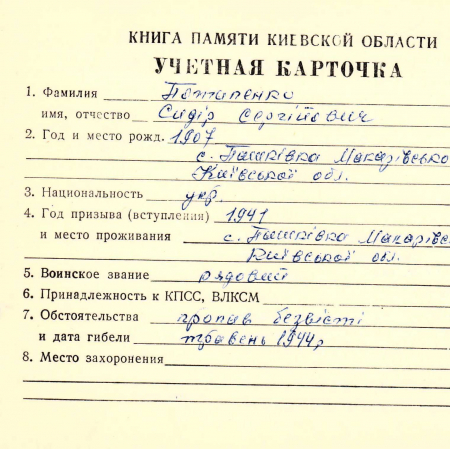 КНИГА ПАМЯТИ КИЕВСКОЙ ОБЛАСТИ
УЧЕТНАЯ КАРТОЧКА
1. Фамилия Потапенко
имя, отчество Сидір Сергійович
2. Год и место рожд. 1907
с. Пашківка Макарівсько
Київської обл.
3. Национальность укр
4. Год призыва (вступления) 1941
и место проживания с. Пашківка Макарівс
Київської обл.
5. Воинское звание рядовий
6. Принадлежность к КПСС, ВЛКСМ
7. Обстоятельства пропав безвісті
и дата гибели травень 1944р
8. Место захоронения